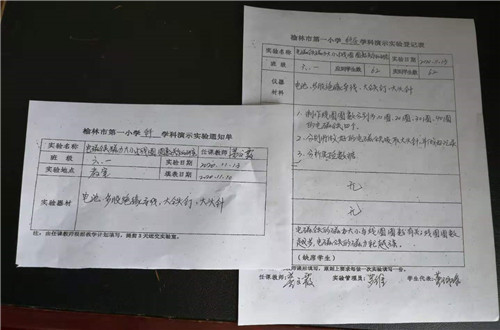 榆林市第一小学 科 学科演示实验通知单
实验名称 电磁铁磁力大小与线圈圈数关系的研究 任课教师
班级 六.一
实验地点 教室 填表日期 2020.11.14
实验器材 电池、多股绝缘导线、大铁钉、大头针
注:由任课教师根据教学计划填写,提前3天送交实验室。
榆林市第一小学 科学 学科演示实验登记表
实验名称 电磁铁磁力大小与线圈圈数关系的研究 实验日期
班级 六.一 应到学生数 62 实到学生数 62
仪器
材料
电池、多股绝缘导线、大铁钉、大头针
1. 制作线圈圈数分别为10圈、20圈、30圈、40圈
的电磁铁四个。
2. 分别用做好的电磁铁吸取大头针,并做好记录
3. 分析实验数据
无
无
电磁铁的磁力大小与线圈圈数有关:线圈圈数
越多,电磁铁的磁力就越强。
(缺席学生)
任课教师: 实验管理员: 学生代表: